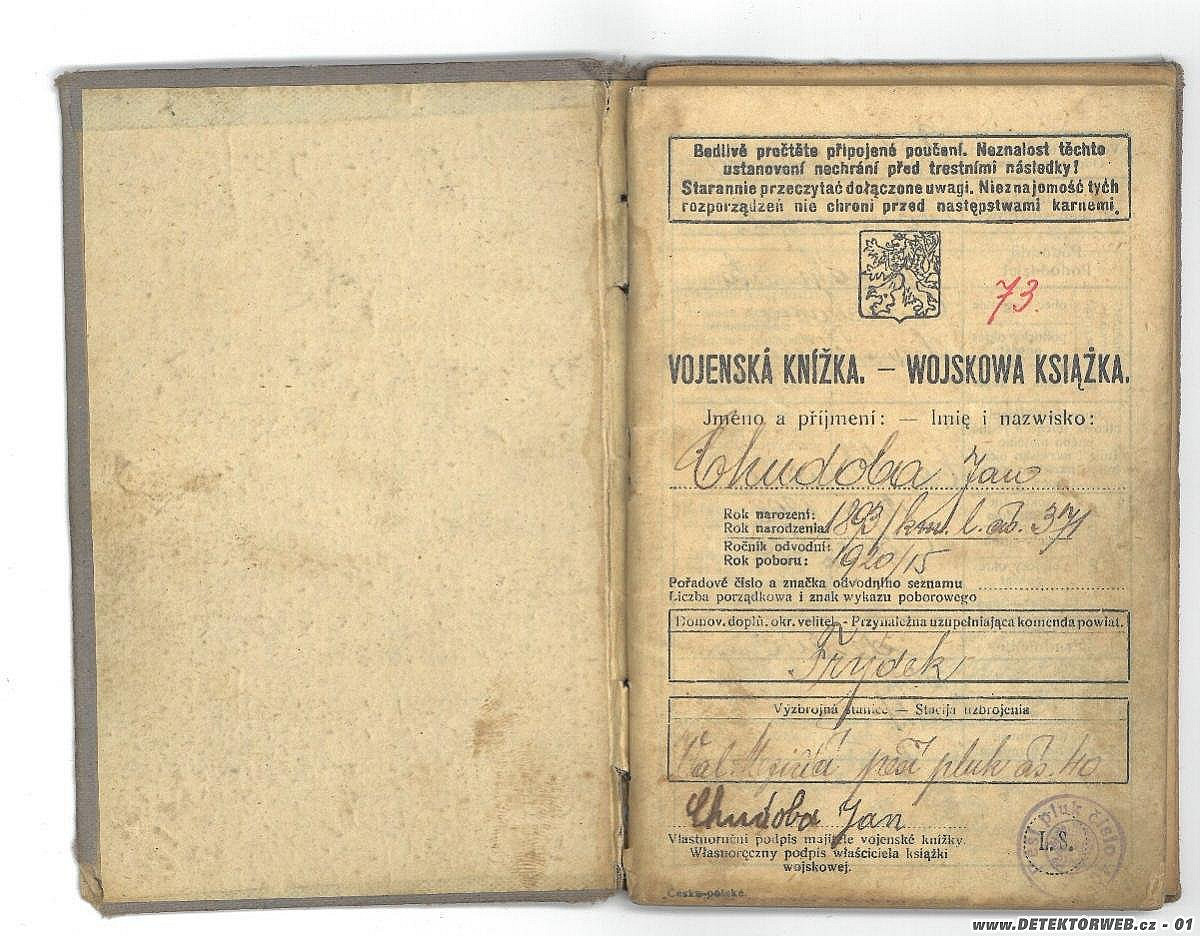 Bedlivě pročtěte připojené poučení. Neznalost těchto
ustanovení nechrání před trestními následky!
Starannie przeczytać dołączone uwagi. Nieznajomość tych
rozporządzeń nie chroni przed następstwami karnemi.
73.
VOJENSKÁ KNÍŽKA. — WOJSKOWA KSIĄŻKA.
Jméno a příjmení: — Imię i nazwisko:
Chudoba Jan
Rok narození:
Rok narodzenia: 1893/ km. l. čís. 371
Ročník odvodní:
Rok poboru: 1920/15
Pořadové číslo a značka odvodního seznamu
Liczba porządkowa i znak wykazu poborowego
Domov. doplň. okr. velitel. - Przynależna uzupełniająca komenda powiat.
Frýdek
Výzbrojná stanice — Stacija uzbrojenia
Val. pěší pluk čís. 40
Chudoba Jan
Vlastnoruční podpis majitele vojenské knížky.
Własnoręczny podpis właściciela książki
wojskowej.
L. S.
pěší pluk číslo
Česko-polské.
www.DETEKTORWEB.cz - 01